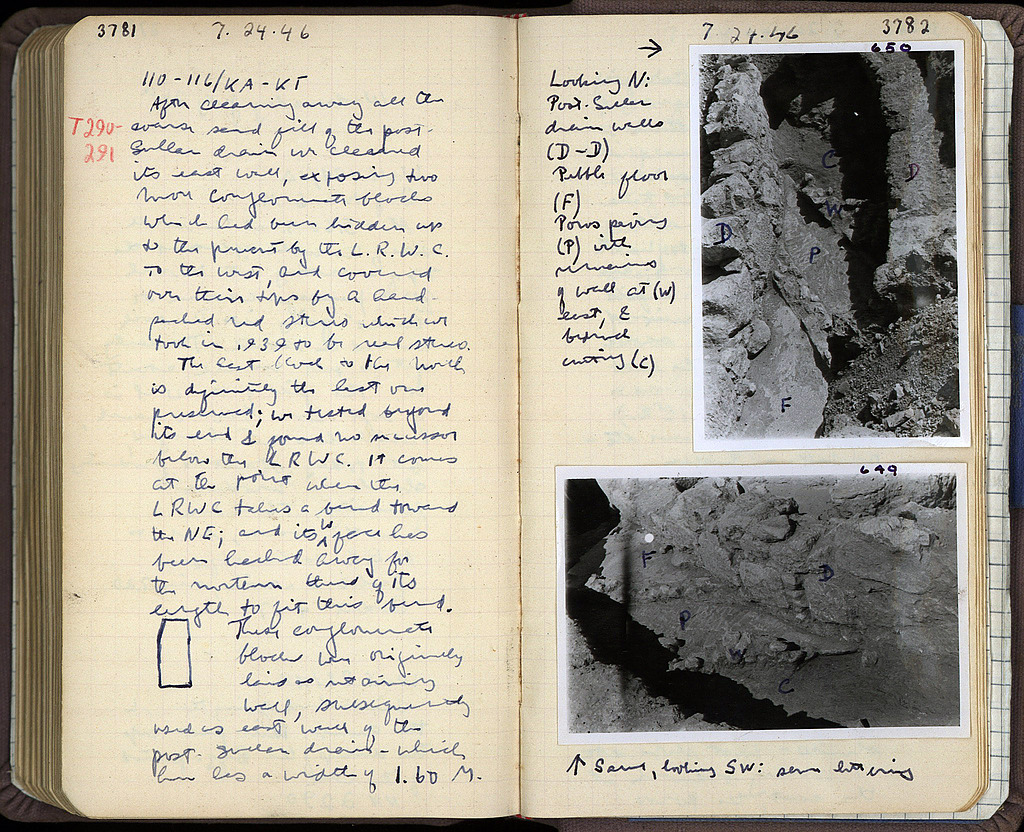 3781
7. 24. 46
110-116/KA-KT
T290-
291
After clearing away all the
coarse sand fill of the post-
Sullan drain we cleaned
its east wall, exposing two
more conglomerate blocks
which had been hidden up
to the present by the L.R.W.C.
to the west, and covered
over their tops by a hard-
packed red stereo which we
took in 1939 to be real stereo.
The last block to the north
is definitely the last one
preserved; we tested beyond
its end & found no successor
below the LRWC. It comes
at the point where the
LRWC takes a bend toward
the NE; and its W face has
been hacked away for
the northern third of its
length to fit this bend.
These conglomerate
blocks were originally
laid as retaining
wall, subsequently
used as east wall of the
post-Sullan drain - which
here has a width of 1.60 M.
7 24.46
3782
→
Looking N:
Post-Sullan
drain walls
(D-D)
Pebble floor
(F)
Poros paving
(P) with
remains
of wall at (W)
east, &
beyond
cutting (C)
650
C
D
W
D
P
F
649
F
D
P
W
C
↑ Same, looking SW: same lettering